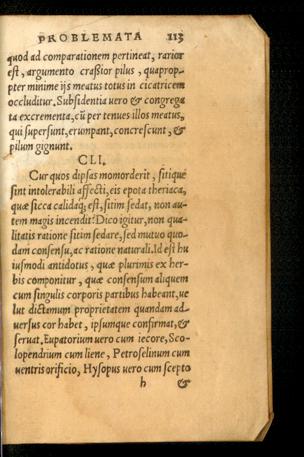 PROBLEMATA 113
quod ad comparationem pertineat, rarior
est, argumento craßior pilus, quaprop-
pter minime ijs meatus totus in cicatricem
occluditur. Subsidentia uero & congrega
ta excrementa, cũ per tenues illos meatus,
qui supersunt, erumpant, concrescunt, &
pilum gignunt.
CLI.
Cur quos dipsas momorderit, sitique
sint intolerabili affecti, eis epota theriaca,
quæ sicca calidaq; est, sitim sedat, non au-
tem magis incendit? Dico igitur, non qua-
litatis ratione sitim sedare, sed mutuo quo-
dam consensu, ac ratione naturali. Id est hu
iusmodi antidotus, quæ plurimis ex her-
bis componitur, quæ consensum aliquem
cum singulis corporis partibus habeant, ue
lut dictamum proprietatem quandam ad-
uersus cor habet, ipsumque confirmat, &
seruat, Eupatorium uero cum iecore, Sco-
lopendrium cum liene, Petroselinum cum
uentris orificio, Hysopus uero cum scepto
h &